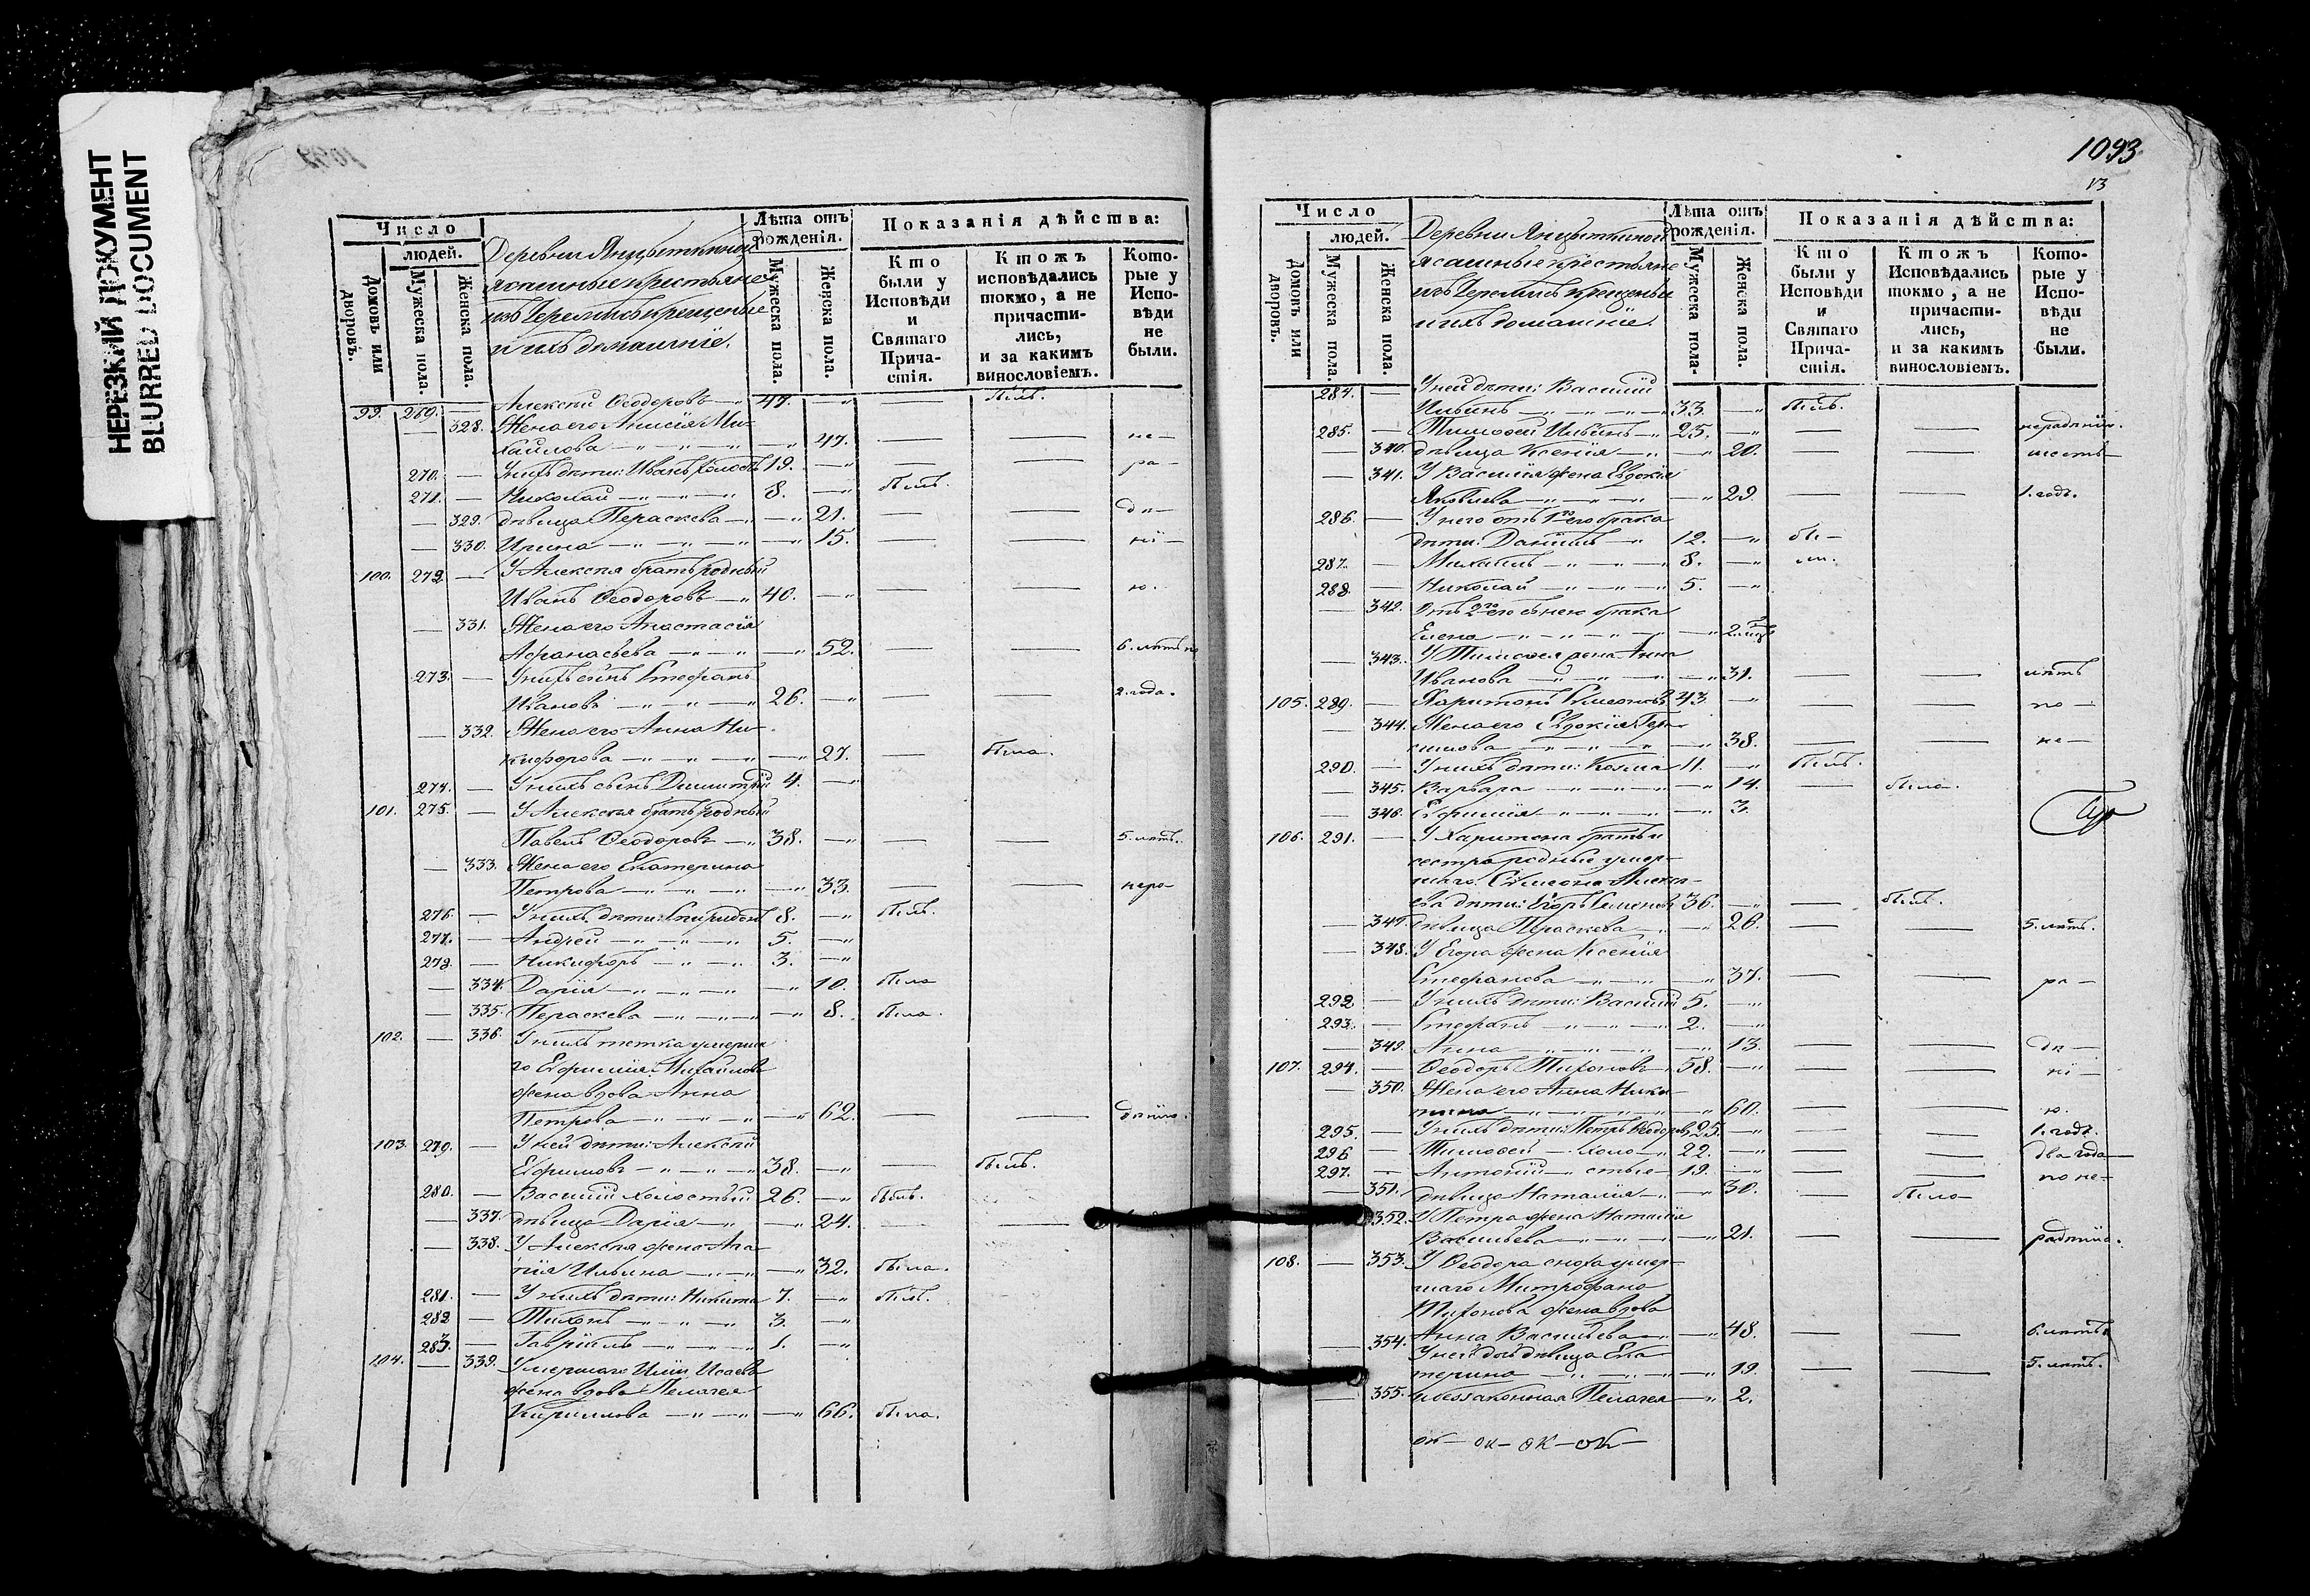 НЕРЕЗКИЙ ДОКУМЕНТ
BLURRED DOCUMENT
Число
людей.
Домовъ или дворовъ.
Мужеска пола.
Женска пола.
Деревни
ясашные крестьяне
изъ Черемисъ крещеные
и ихъ домашніе.
Лѣта отъ рожденія.
Мужеска пола.
Женска пола.
Показанія дѣйства:
Кто были у Исповѣди и Святаго Прича- стія.
Ктожъ исповѣдались токмо, а не причасти- лись, и за какимъ винословіемъ.
Кото- рые у Испо- вѣди не были.
99. 269. — Алексѣй Ѳеодоровъ — 47. — — былъ.
— 328. Жена его Анисія Ми-
хайлова — 47. — — не-
270. — У нихъ дѣти: Иванъ холостъ 19. — — — ра-
271. — Николай — 8. — былъ.
— 329. дѣвица Параскева — 21. — — дѣ-
— 330. Ирина — 15. — — ні-
100. 272. — У Алексѣя братъ родный
Иванъ Ѳеодоровъ — 40. — — — ю.
— 331. Жена его Анастасія
Афанасьева — 52. — — 6. лѣтъ
273. — У нихъ сынъ Стефанъ
Ивановъ — 26. — — — 2. года.
— 332. Жена его Анна Ни-
кифорова — 27. — была.
274. — У нихъ сынъ Димитрій 4. —
101. 275. — У Алексѣя братъ родный
Павелъ Ѳеодоровъ — 38. — — — 5. лѣтъ.
— 333. Жена его Екатерина
Петрова — 33. — — нера-
276. — У нихъ дѣти: Спиридонъ 8. — былъ.
277. — Андрей — 5. —
278. — Никифоръ — 3. —
— 334. Дарія — 10. была
— 335. Параскева — 8. была.
102. — 336. У нихъ тетка умерша-
го Ефимія Михайлова
жена вдова Анна
Петрова — 62. — — дѣнію.
103. 279. — У ней дѣти: Алексѣй
Ефимовъ — 38. — — былъ.
280. — Василій холостый 26. — былъ.
— 337. дѣвица Дарія — 24. — —
— 338. У Алексѣя жена Ага-
пія Ильина — 32. была.
281. — У нихъ дѣти: Никита 7. — былъ.
282 — Тихонъ — 3. —
283. — Гавріилъ — 1. —
104. — 339. Умершаго Иліи Исаева
жена вдова Пелагея
Кириллова — 66. была.
1093
Число
людей.
Домовъ или дворовъ.
Мужеска пола.
Женска пола.
Деревни
ясашные крестьяне
изъ Черемисъ крещены
и ихъ домашніе.
Лѣта отъ рожденія.
Мужеска пола.
Женска пола.
Показанія дѣйства:
Кто были у Исповѣди и Святаго Прича- стія.
Ктожъ Исповѣдались токмо, а не причасти- лись, и за какимъ винословіемъ.
Кото- рые у Испо- вѣди не были.
284. — У ней дѣти: Василій
Ильинъ — 33. — былъ.
285. — Тимоѳей Ильинъ — 25. — — —
— 340. дѣвица Ксенія — 20. — —
— 341. У Василія жена Евдокія
Яковлева — 29. — — 1. годъ.
286. — У него отъ 1го его брака
дѣти: Даніилъ — 12. — бы-
287. — Михаилъ — 8. — ли.
288. — Николай — 5. —
— 342. Отъ 2го его съ нею брака
Елена —
— 343. У Тимоѳея жена Анна
Иванова — 31. — — лѣтъ
105. 289. — Харитонъ Симеоновъ 43. — по —
— 344. Жена его Евдокія Гера-
симова — 38. — — не —
290. — У нихъ дѣти: Козма 11. — былъ.
— 345. Варвара — 14. — была.
— 346. Ефимія — 3.
106. 291. — У Харитона братъ и
сестра родные умер-
шаго Симеона Алексѣ-
ева дѣти: Егоръ Семеновъ 36. — — былъ.
— 347. дѣвица Параскева — 26. — — 5. лѣтъ.
— 348. У Егора жена Ксенія
Стефанова — 37. — — ра —
292 — У нихъ дѣти: Василій 5. —
293. — Стефанъ — 2. —
— 349. Анна — 13. — — дѣ —
107. 294. — Ѳеодоръ Тихоновъ 58. — — — ні —
— 350. Жена его Анна Ники-
тина — 60. — — ю.
295. — У нихъ дѣти: Петръ Ѳеодоровъ 25. — — — 1. годъ.
296 — Тимоѳей — холо — 22. — — — два года
297. — Антоній — стые — 19. — — — по не —
— 351. дѣвица Наталія — 30. — была
352. У Петра жена Наталія
Васильева — 21. — — радѣнію.
108. — 353. У Ѳеодора сноха умер-
шаго Митрофана
Тихонова жена вдова
Анна Васильева — 48. — — 6. лѣтъ.
— 354. У ней дочь дѣвица Ека-
терина — 19. — — 5. лѣтъ.
— 355. незаконная Пелагея — 2.